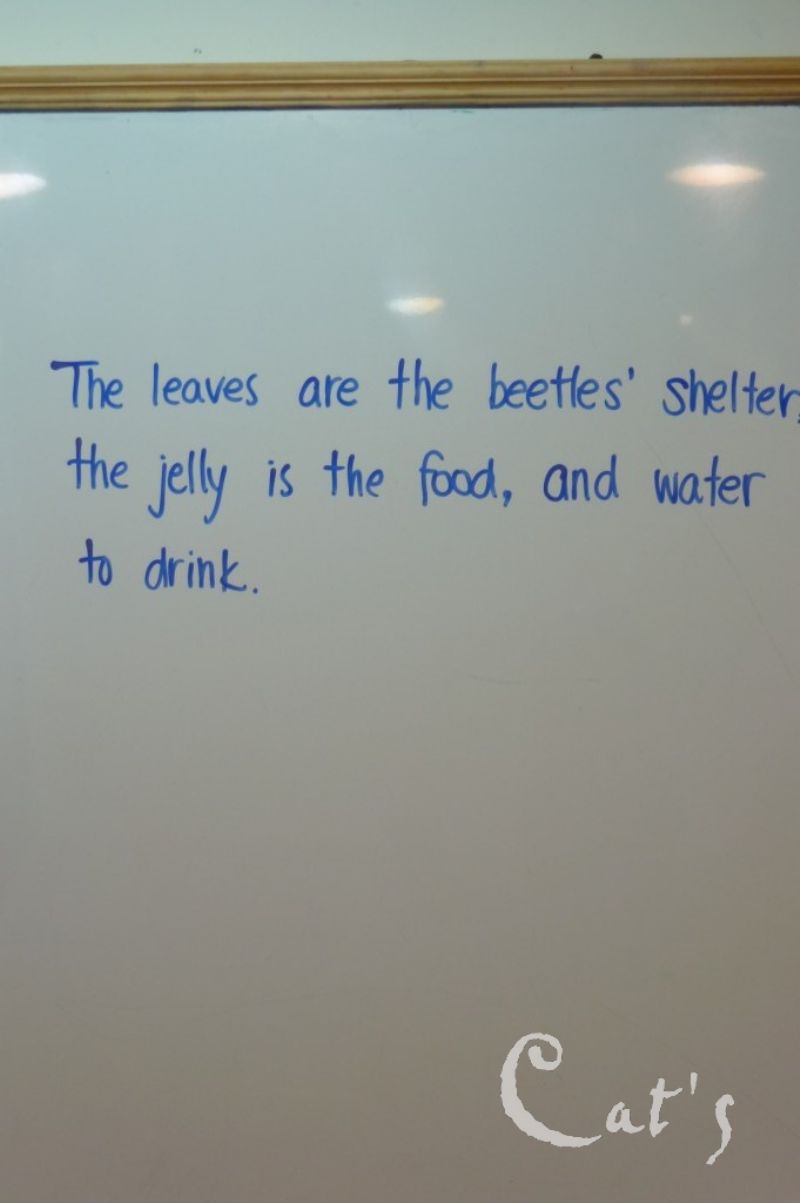 The leaves are the beetles' shelter,
the jelly is the food, and water
to drink.
Cat's